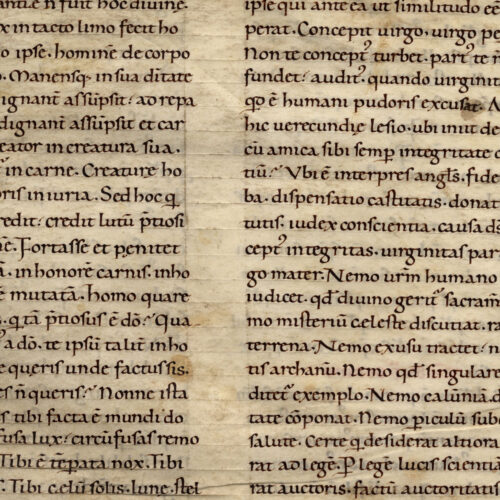 antie n̄ fuit hoc divine.
ex intacto limo fecit ho
o ipse. hominē de corpo
o. Manensq; in sua dıtate
dignant̄ assūpsit: ad repa
dignant̄ assūpsit et car
eator in creatura sua.
in carne. Creature ho
oris iniuria. Sed hoc q
redit: credit lutū p̄tiosi
Fortasse et penitet
in honorē carnis. inho
ē mutatā. homo quare
q̄ tā p̄tiosus ē dō: Qua
a dō. te ipsū talit̄ inho
e queris unde factus sis.
es n̄ queris: Nonne ista
s tibi facta ē mundi do
fusa lux: circūfusas remo
Tibi ē tēp̄ata nox. Tibi
Tibi c̨elū solis. lune. stel
ipse qui antea ut similitudo eē
perat. Concepit virgo. virgo pe
Non te concept᷒ turbet. part᷒ te n̄
fundet: audit᷒. quando virginit
qd̄ ē humani pudoris excusat.
hic verecundie lesio. ubi init de
cū amica sibi semp̄ integritate c
tiū: Ubi ē interpres angl̄s. fide
ba. dispensatio castitatis. donat
tutis. iudex conscientia. causa ds̄
cept᷒ integritas. virginitas par
go mater. Nemo ur̄m humano
iudicet. qd̄ divino gerit᷒ sacram̄
mo misteriū c̨eleste discutiat. ra
terrena. Nemo ex usu tractet. n
tis archanū. Nemo qd̄ singulare
ditet᷒ exemplo. Nemo calūniā d
tate cōponat. Nemo piculū sube
salute. Certe qd̄ desiderat altiora
rat ad legē. P legē lucis scientiā
rat auctoris. factū auctoritatis